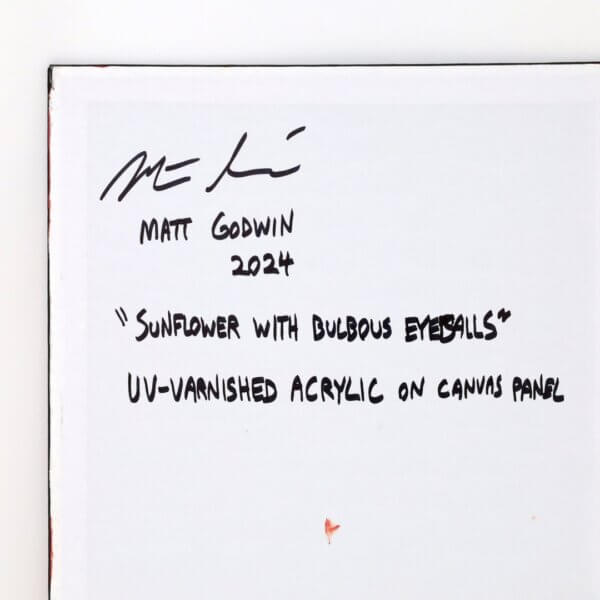 MATT GODWIN
2024
"SUNFLOWER WITH BULBOUS EYEBALLS"
UV-VARNISHED ACRYLIC ON CANVAS PANEL